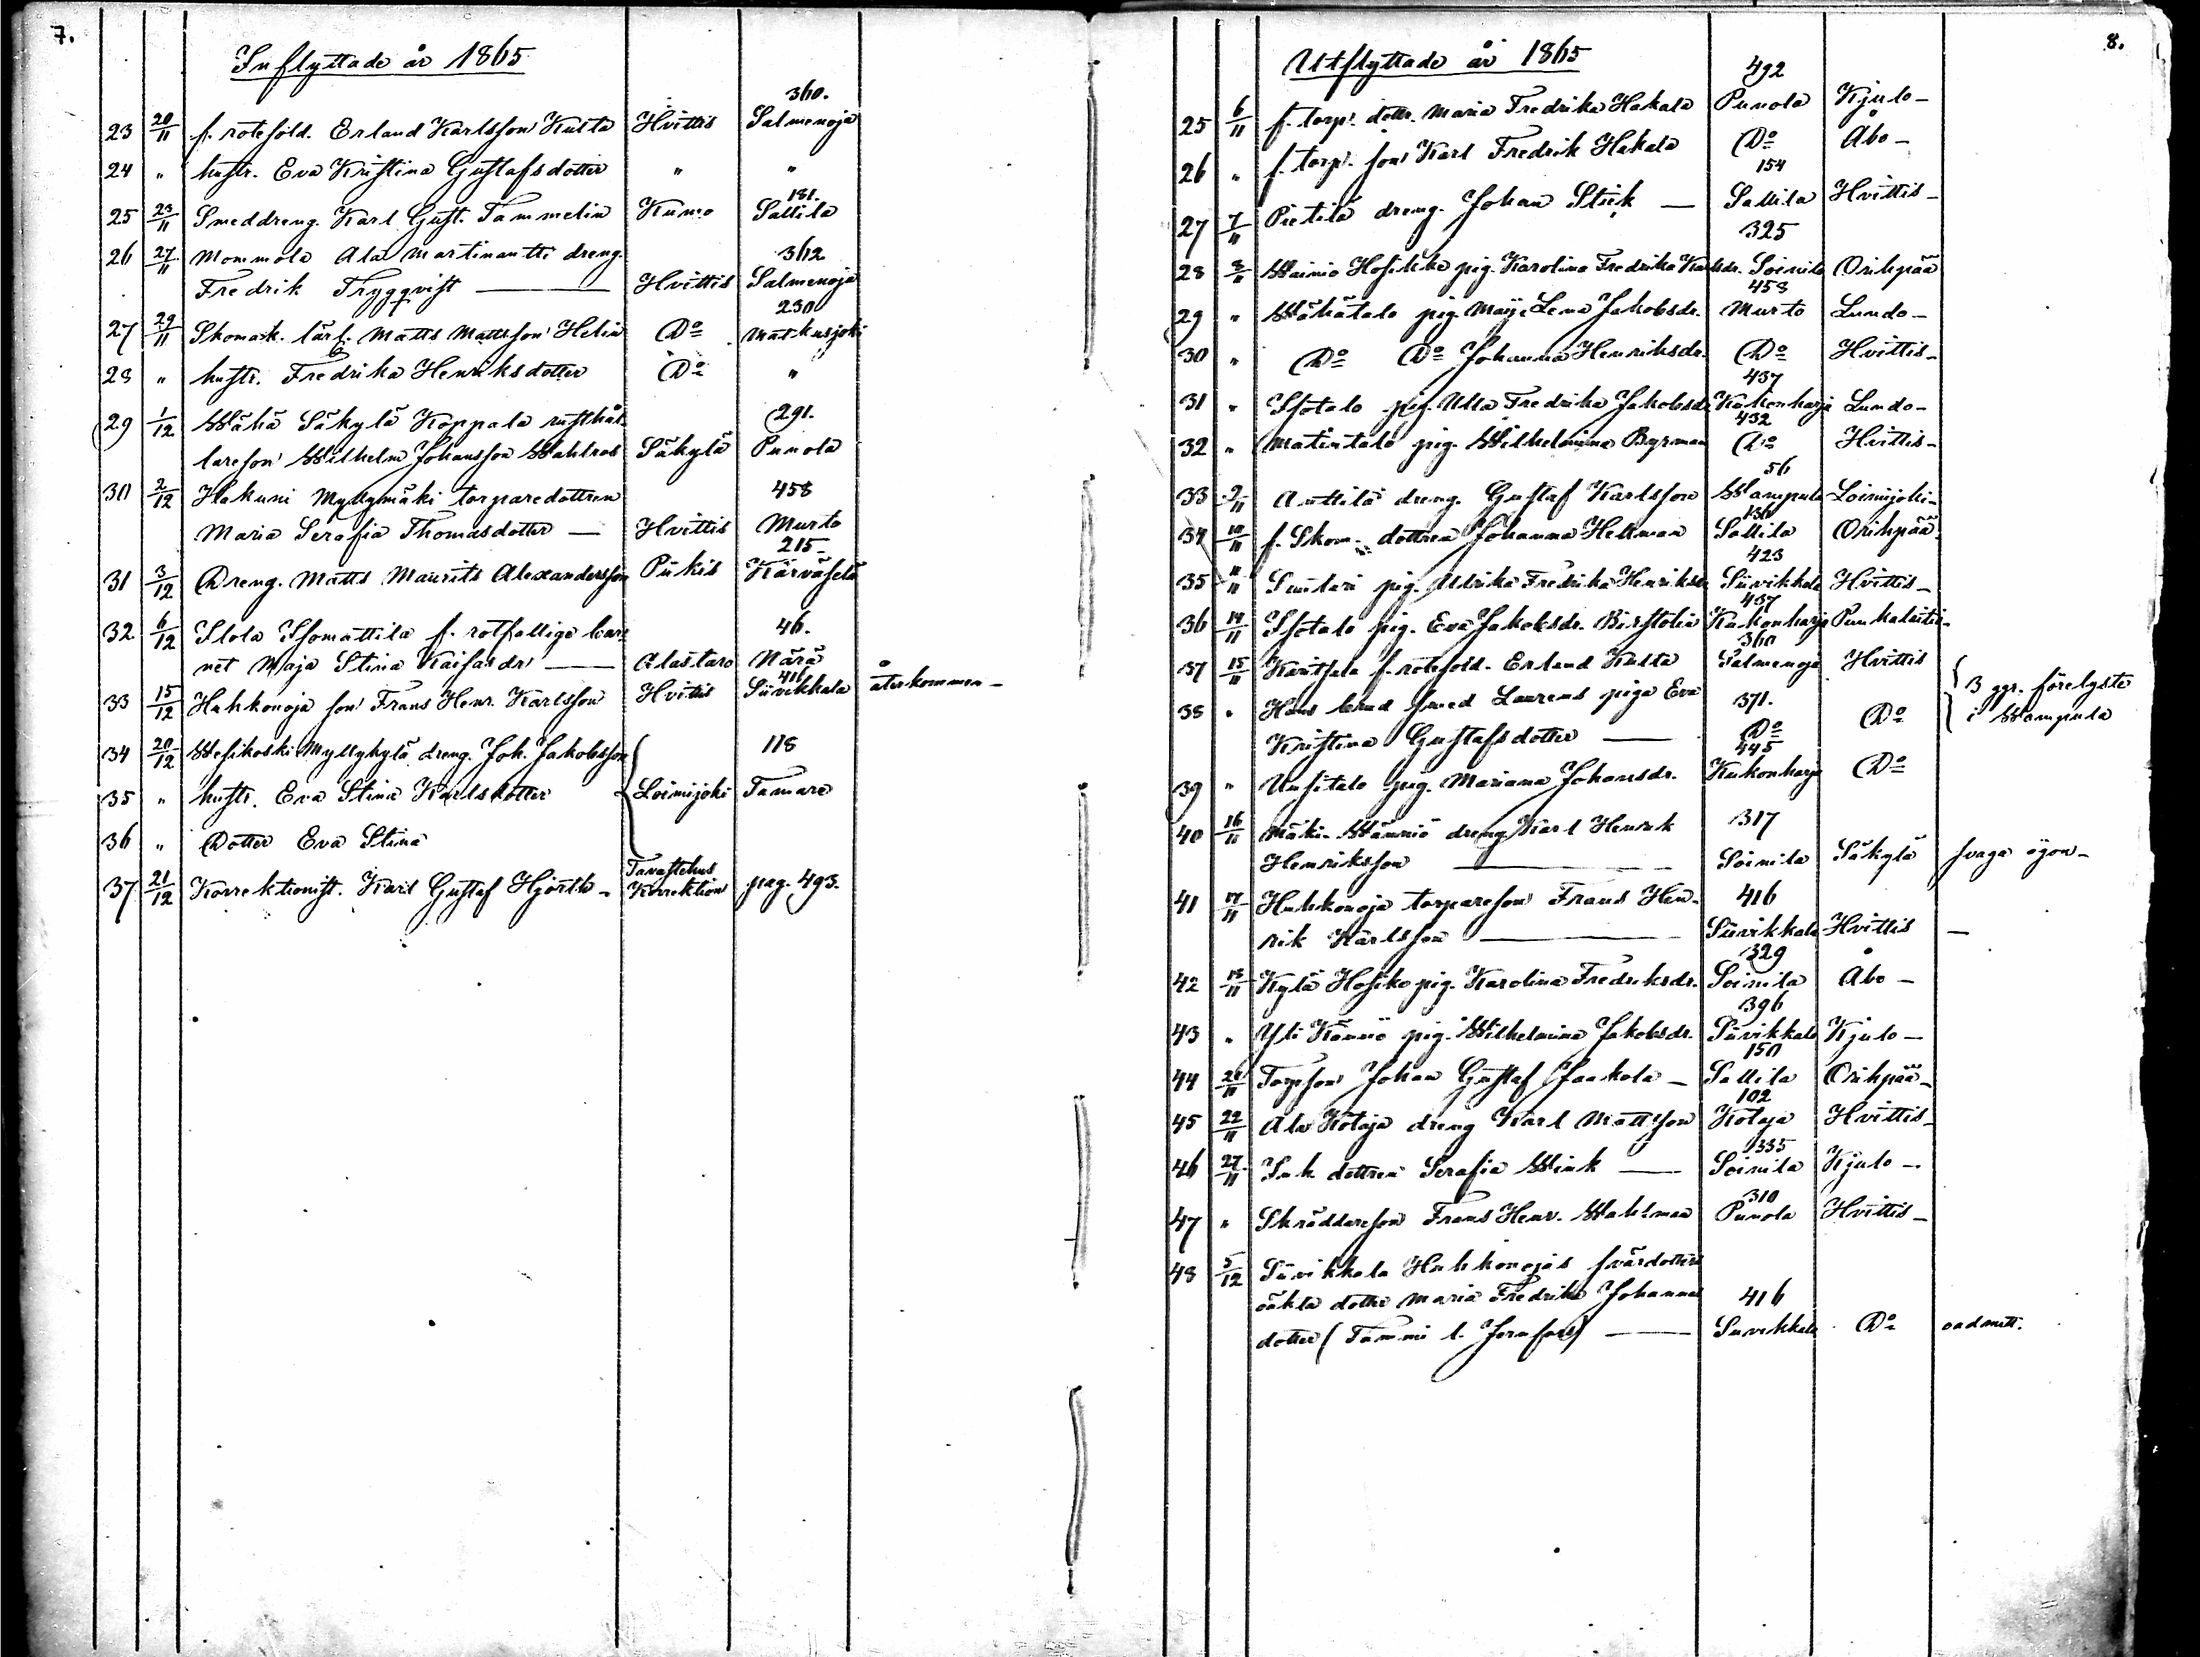 7.
Inflyttade år 1865
360.
23 20/11 f. rotesold. Erland Karlsson Kulta Hvittis Salmenoja
24 " hustr. Eva Kristina Gustafsdotter " "
181.
25 23/11 Smeddreng. Karl Gust. Tammelin Kumo Sallila
26 27/11 Mommola Ala Martinantti dreng. 362
Fredrik Tryggqvist — Hvittis Salmenoja
230
27 29/11 Skomak. lärl. Matts Mattsson Helin Do Matkusjoki
28 " hustr. Fredrika Henriksdotter Do "
29 1/12 Wähä Säkylä Koppala rusthål- 291.
lareson Wilhelm Johansson Wahlros Säkylä Punola
30 2/12 Hakuni Myllymäki torparedottren 458
Maria Serafia Thomasdotter — Hvittis Murto
215
31 3/12 Dreng. Matts Maurits Alexandersson Pükis Kärväselä
32 6/12 Isotalo Isomattila f. rotfattiga bar- 46.
net Maja Stina Kaisasdr — Alastaro Närä
416
33 15/12 Huhkonoja son Frans Henr. Karlsson Hvittis Süvikkala återkommen —
34 20/12 Wesikoski Myllykylä dreng. Joh. Jakobsson 118
35 " hustr. Eva Stina Karlsdotter Loimijoki Tamare
36 " Dotter Eva Stina
Tavastehus
37 21/12 Korrektionist. Karl Gustaf Hjorth — Korrektion pag. 493.
8.
Utflyttade år 1865
492
25 6/11 f. torp. dottr. Maria Fredrika Hakala Punola Kjulo —
26 " f. torp. son Karl Fredrik Hakala Do Åbo —
154
27 7/11 Pietilä dreng. Johan Stick — Sallila Hvittis —
325
28 8/11 Wainio Hosikko pig. Karolina Fredrika Karlsdr. Soinila Orihpää
458
29 " Wähätalo pig. Maija Lena Jakobsdr. Murto Lundo —
30 " Do Do Johanna Henriksdr. Do Hvittis —
437
31 " Isotalo pig. Ulla Fredrika Jakobsdr. Kukonharja Lundo —
432
32 " Matintalo pig. Wilhelmina Byrman Do Hvittis —
56
33 9/11 Anttila dreng. Gustaf Karlsson Wampula Loimijoki —
136
34 10/11 f. Skom. dottren Johanna Hellman Sallila Orihpää
423
35 11/11 Suutari pig. Ulrika Fredrika Henriksdr Süvikkala Hvittis —
437
36 14/11 Isotalo pig. Eva Jakobsdr. Kukonharja Punkalaitio —
360
37 15/11 f. rotesold. Erland Kulta Salmenoja Hvittis
38 " Hans brud smed Laurens piga Eva 371.
Kristina Gustafsdotter — Do Do
3 ggr. förelyste
i Wampula
445
39 " Uusitalo pig. Mariana Johansdr. Kukonharja Do
40 16/11 Mäki-Wänniö dreng Karl Henrik 317
Henriksson — Soinila Säkylä svaga ögon —
41 17/11 Huhkonoja torpareson Frans Hen- 416
rik Karlsson — Süvikkala Hvittis —
329
42 18/11 Kylä Hosiko pig. Karolina Fredriksdr. Soinila Åbo —
396
43 " Yli Känniö pig. Wilhelmina Jakobsdr. Süvikkala Kjulo —
150
44 20/11 Torpson Johan Gustaf Jaakola — Sallila Orihpää —
102
45 22/11 Ala Kotaja dreng Karl Mattsson Kotaja Hvittis —
335
46 27/11 Inh. dottren Serafia Wink — Soinila Kjulo —
310
47 " Skräddareson Frans Henr. Wahlman Punola Hvittis —
48 5/12 Süvikkala Huhkonojas svärdotters
oäkta dotter Maria Fredrika Johannes 416
dotter (Tammi l. Jernfors) — Süvikkala Do oadmitt.